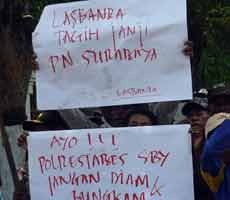 LASBANDRA
TAGIH JANJI
PN SURABAYA
LASBANDRA
AYO !!!
POLRESTABES SBY
JANGAN DIAM &
BUNGKAM